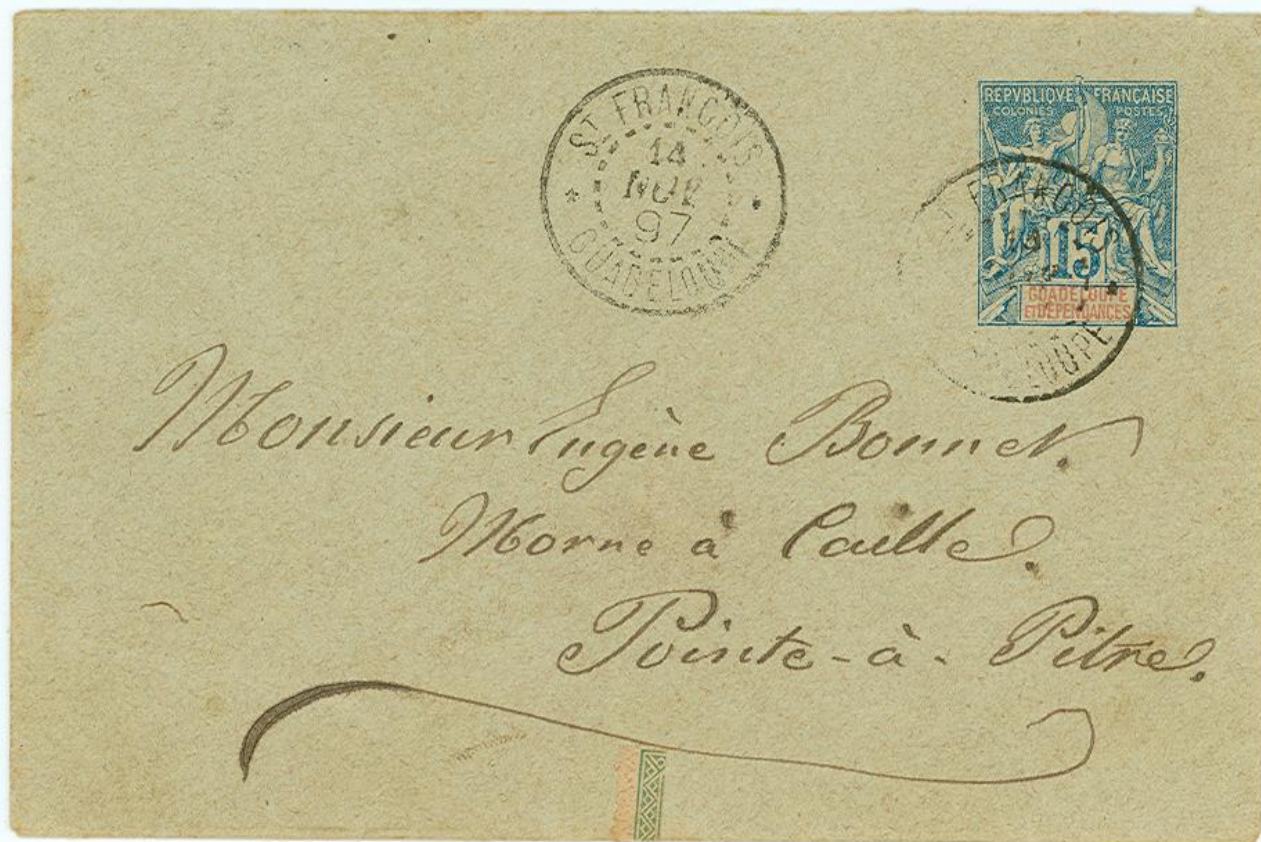 ST FRANÇOIS
14
NOV
97
GUADELOUPE
REPVBLIQVE FRANÇAISE
COLONIES POSTES
15
GUADELOUPE
ET DÉPENDANCES
FRANÇOIS
14
Monsieur Eugène Bonnet.
Morne à Caille.
Pointe-à-Pitre.